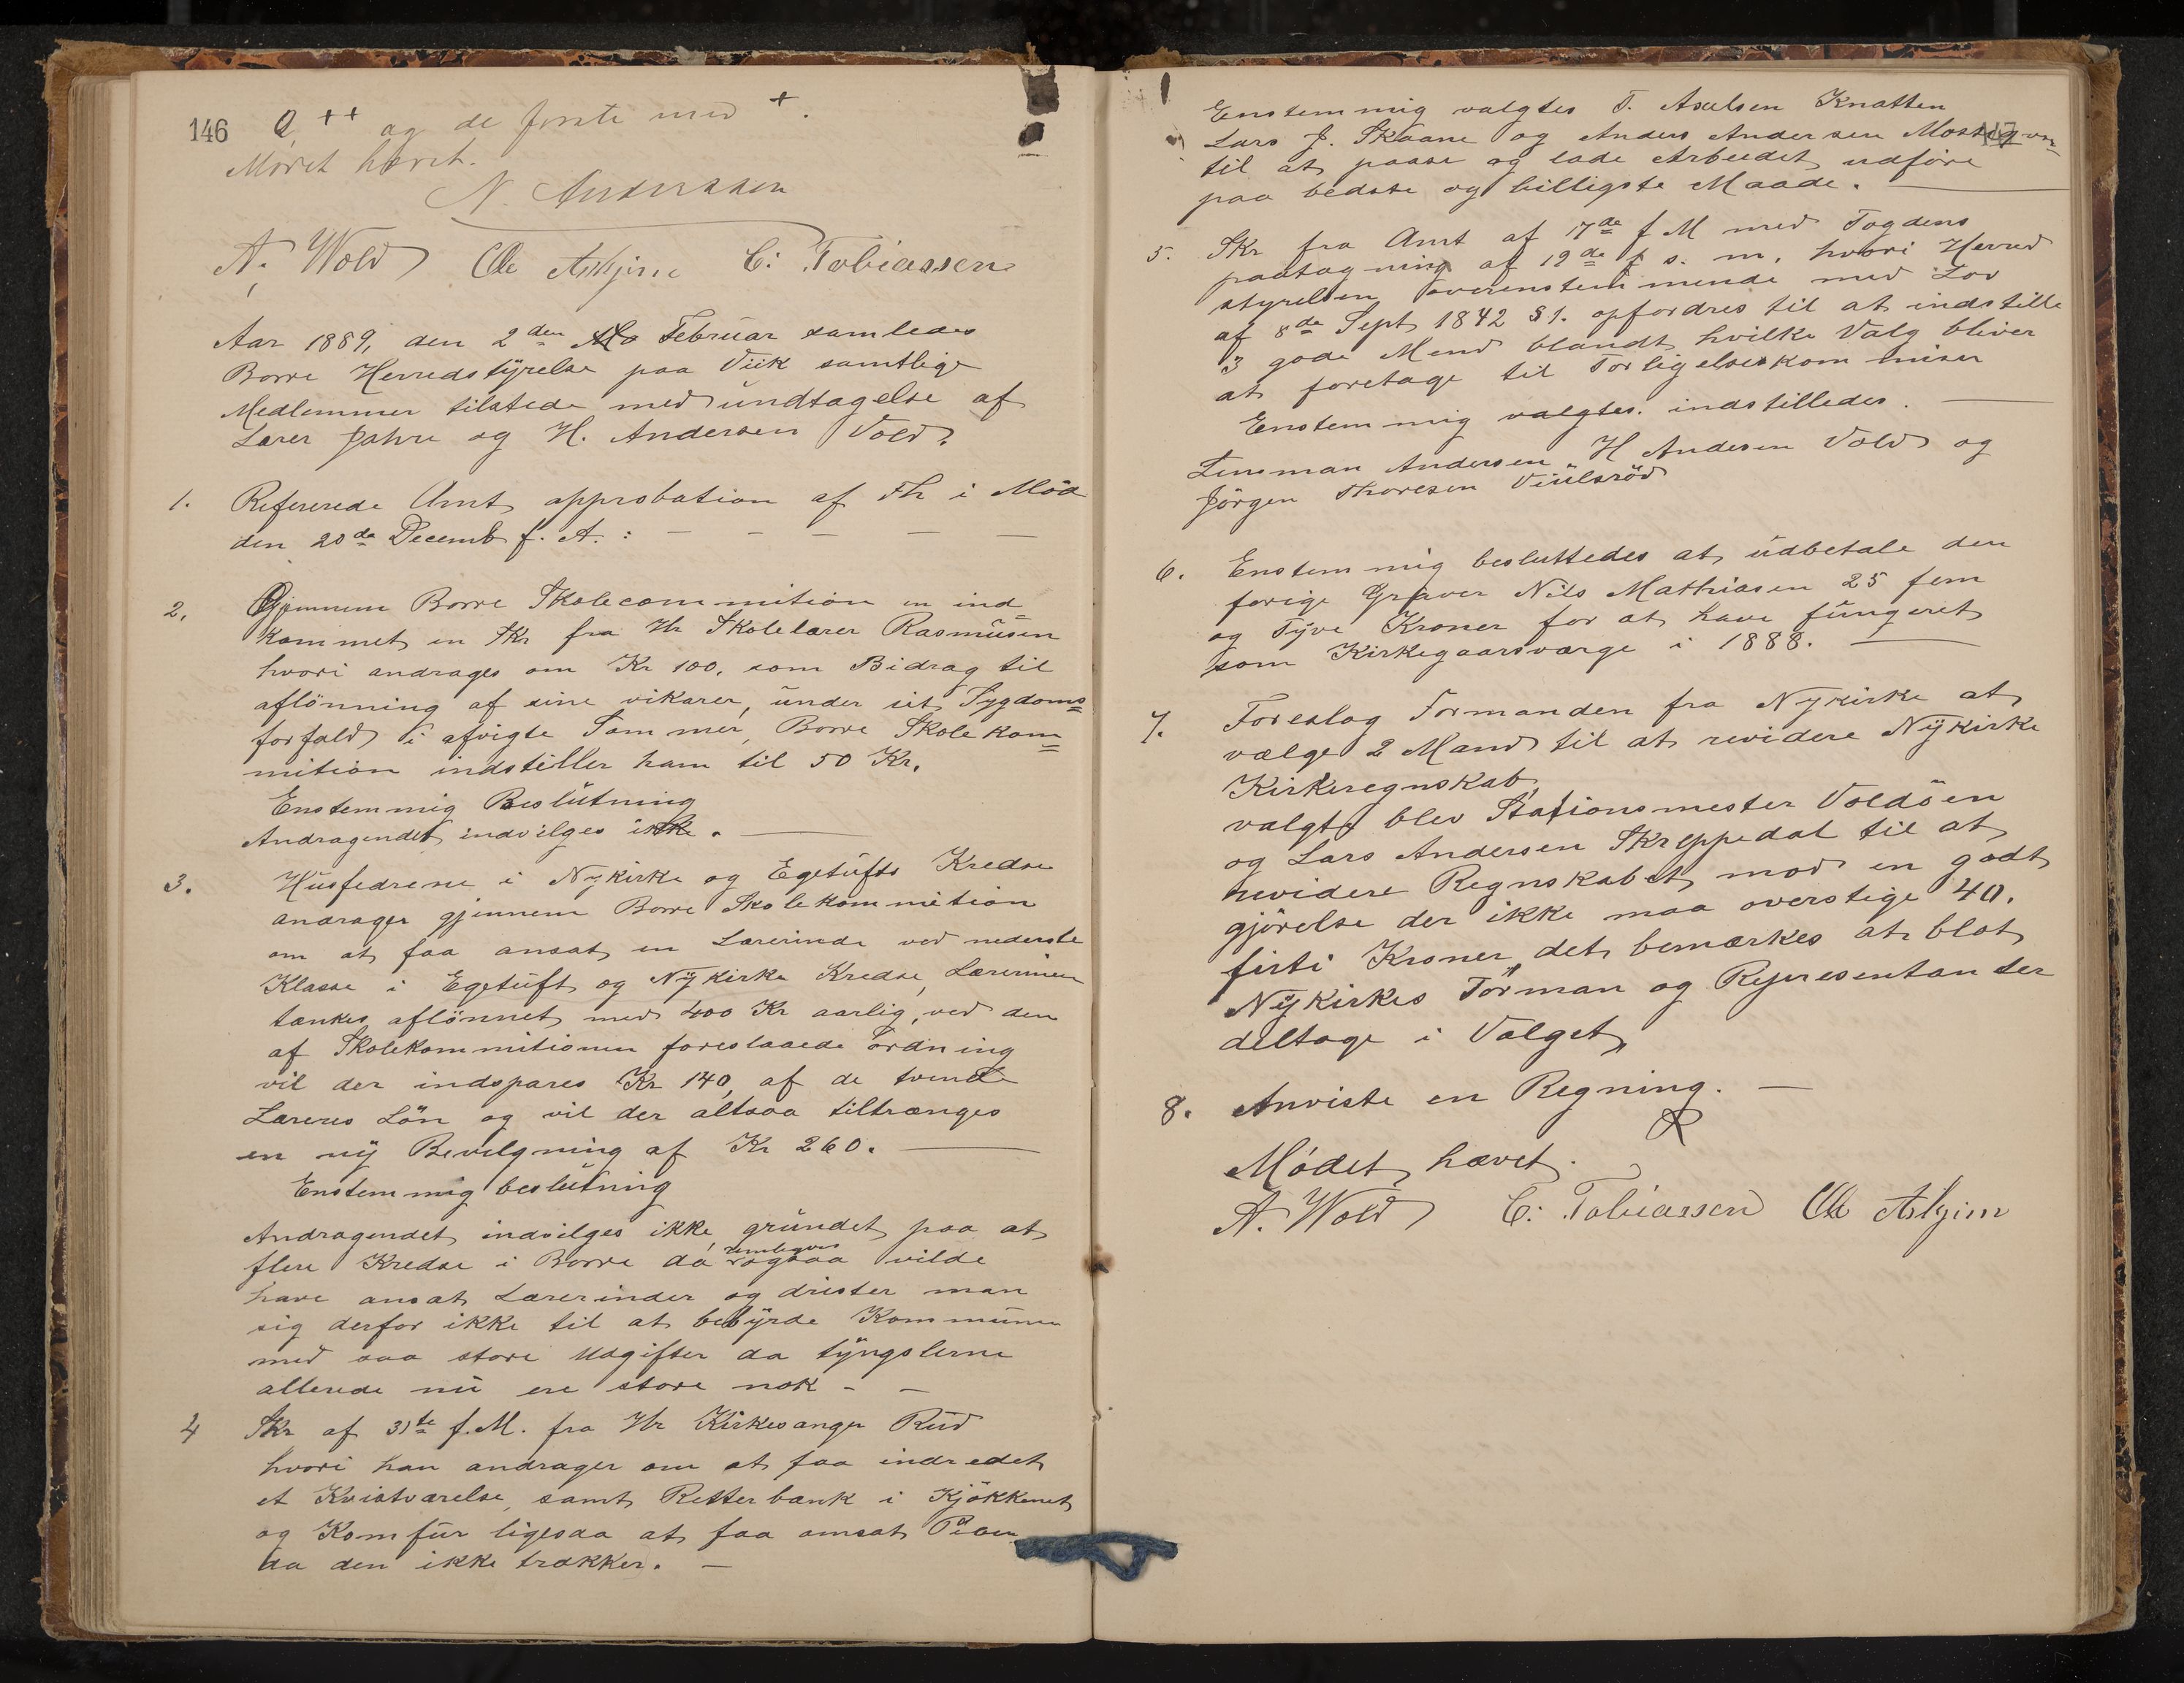 146 Q ++ og de förste med +.
Mödet hævet.
N. Anderssen
A. Wold Ole Askjem C: Tobiassen
Aar 1889, den 2den Februar samledes
Borre Herredstÿrelse paa Viik samtlige
Medlemmer tilstede med undtagelse af
Lærer Jahre og H. Andersen Vold.
1. Refererede Amt approbation af Fh i Möd
den 20de Decemb f. A. : — — — — —
2. Gjennem Borre Skolecommition en ind=
kommet en Skr fra Hr Skolelærer Rasmusen
hvori andrages om Kr 100, som Bidrag til
aflönning af sine vikarer, under sit Sygdoms=
forfald i afvigte Sommer, Borre Skolekom=
mition indstiller ham til 50 Kr.
Enstemmig Beslutning
Andragendet indvilges ikke. —
3. Husfedrene i Nykirke og Egetufts Kredse
andrager gjennem Borre Skolekommition
om at faa ansat en Lærerinde ved nederste
Klasse i Egetuft og Nÿkirke Kredse, Lærerinen
tænkes aflönnet med 400 Kr aarlig, ved den
af Skolekommitionen foreslaaede ordning
vil der indspares Kr 140, af de tvende
Læreres Lön og vil der altsaa tiltrænges
en nÿ Bevilgning af Kr 260. —
Enstemmig beslutning
Andragendet indvilges ikke, grundet paa at
rimeligvis
flere Kredse i Borre da ogsaa vilde
have ansat Lærerinder og drister man
sig derfor ikke til at bebÿrde Kommunen
med saa store Udgifter da tÿngslerne
allerede nu ere store nok - -
4 Skr af 31te f. M. fra Hr Kirkesanger Rud
hvori han andrager om at faa indredet
et Kvistværelse, samt Retterbænk i Kjökkenet
og Komfur ligesaa at faa omsat
da den ikke trækker. —
147
Enstemmig valgtes T. Axelsen Knatten
Lars J. Skaane og Anders Andersen
til at paase og lade Arbeidet udföre
paa bedste og billigste Maade. —
5. Skr fra Amt af 17de f M med Fogdens
paategning af 19de f s. m, hvori Herred
styrelsen overenstemmende med Lov
af 8de Sept 1842 §1. opfordres til at indstille
3 gode Mend blandt hvilke Valg bliver
at foretage til Forligelseskommiser
Enstemmig valgtes. indstilledes. —
Lensman Andersen, H Andersen Vold og
Jörgen Thoresen Viulsröd
6. Enstemmig besluttedes at udbetale den
forige Graver Nils Mathiasen 25 fem
og Tÿve Kroner for at have fungeret
som Kirkegaarsværge i 1888. —
7. Foreslog Formanden fra Nykirke at
vælge 2 Mand til at revidere Nÿkirke
Kirkeregnskab,
valgte blev Stationsmester Voldsen
og Lars Andersen Skreppedal til at
revidere Regnskabet, mod en godt
gjörelse der ikke maa overstige 40.
firti Kroner, det bemærkes at blot
Nÿkirkes Förman og Representanter
deltage i Valget,
8. Anviste en Regning. —
Mödet hævet.
A. Wold C: Tobiassen Ole Askjem